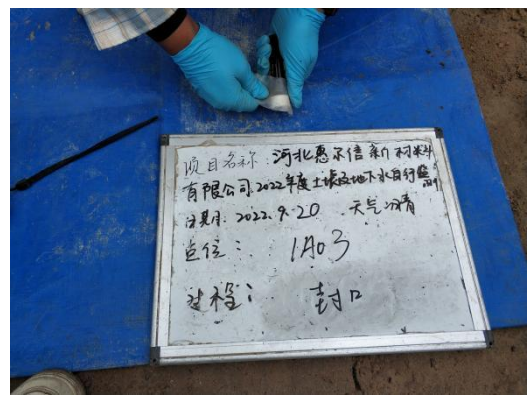 项目名称:河北惠尔信新材料
有限公司2022年度土壤及地下水自行监测
日期:2022.9.20 天气:晴
点位: 1A03
过程: 封口